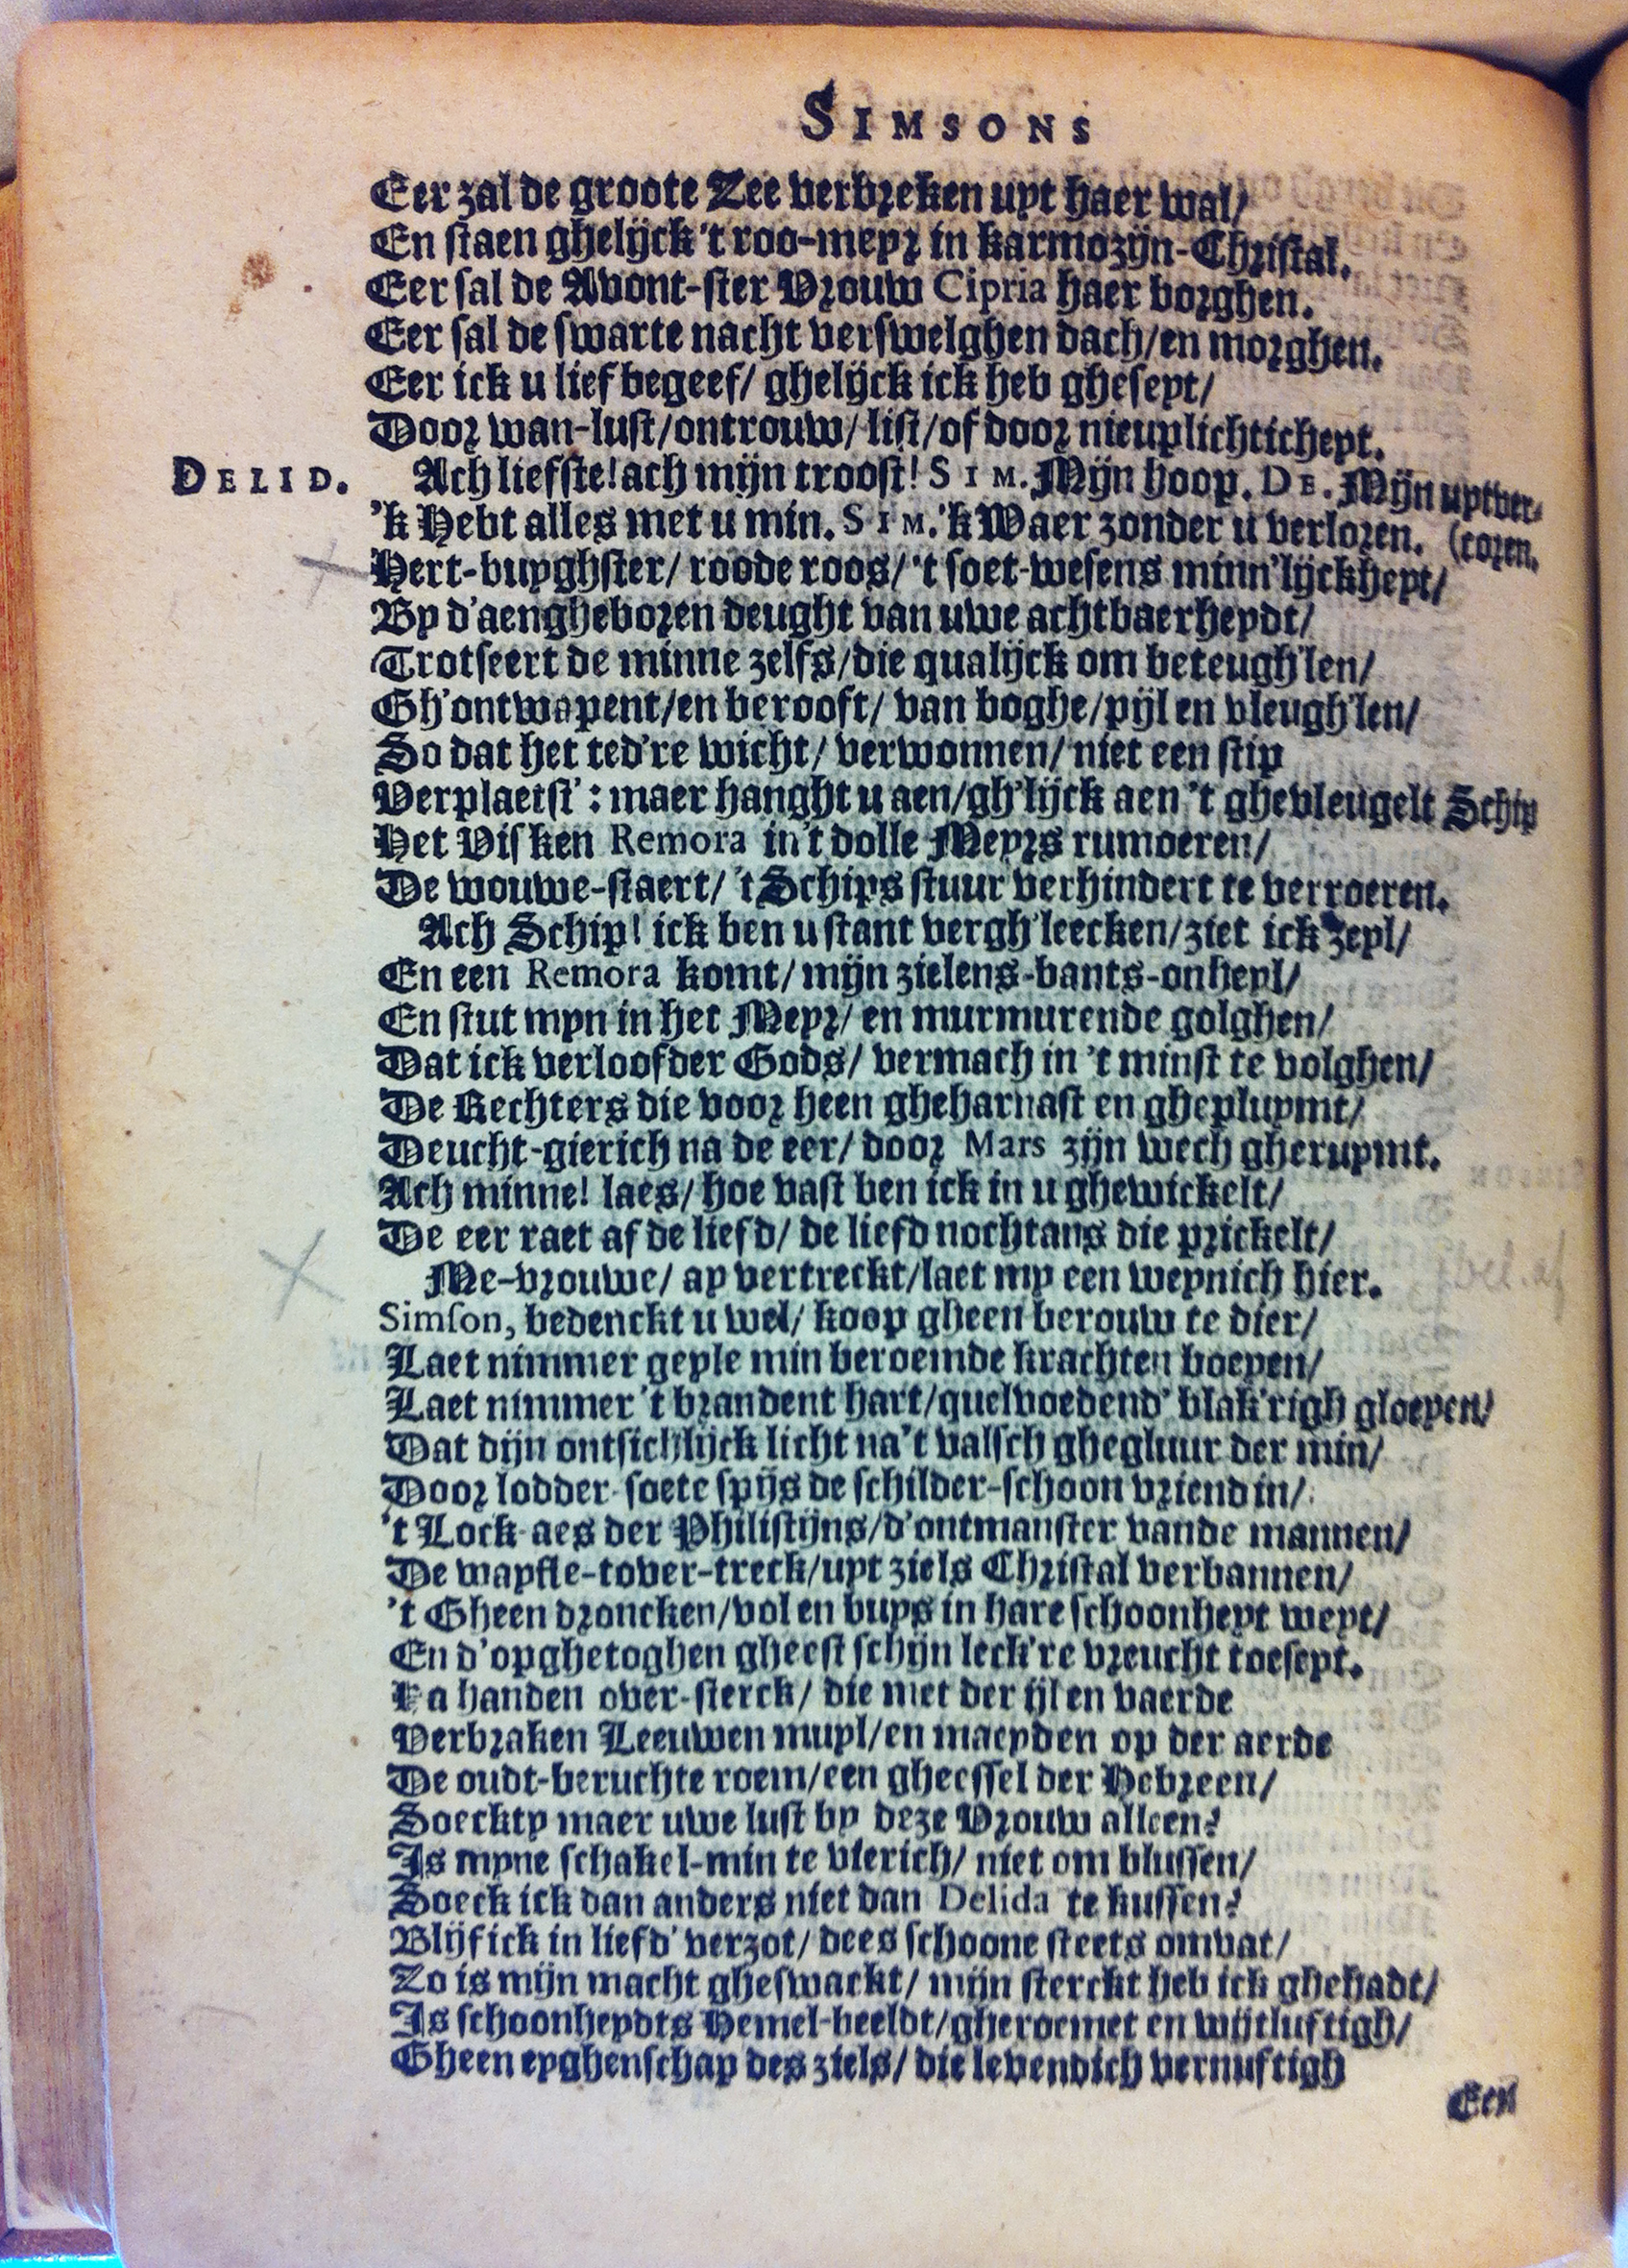 SIMSONS
Eer zal de groote Zee verbreken uyt haer wal/
En staen ghelijck 't roo-meyr in karmozijn-Christal.
Eer sal de Avont-ster Vrouw Cipria haer borghen.
Eer sal de swarte nacht verswelghen dach/en morghen.
Eer ick u lief begeef/ ghelijck ick heb gheseyt/
Door wan-lust/ontrouw/list/of door nieuplichticheyt.
DELID. Ach liefste! ach mijn troost! SIM. Mijn hoop. DE. Mijn uytver-
'k Hebt alles met u min. SIM. 'k Waer zonder u verloren. (coren.
Hert-buyghster/ roode roos/ 't soet-wesens minn'lijckheyt/
By d'aengheboren deught van uwe achtbaerheydt/
Trotseert de minne zelfs/die qualijck om beteugh'len/
Gh'ontwapent/en berooft/ van boghe/pijl en vleugh'len/
So dat het ted're wicht/ verwonnen/ niet een stip
Verplaetst': maer hanght u aen/gh'lijck aen 't ghevleugelt Schip
Het Visken Remora in't dolle Meyrs rumoeren/
De wouwe-staert/ 't Schips stuur verhindert te verroeren.
Ach Schip! ick ben u stant vergh'leecken/ziet ick zeyl/
En een Remora komt/ mijn zielens-bants-onheyl/
En stut myn in het Meyr/ en murmurende golghen/
Dat ick verloofder Gods/ vermach in 't minst te volghen/
De Rechters die voor heen gheharnast en ghepluymt/
Deucht-gierich na de eer/ door Mars zijn wech gheruymt.
Ach minne! laes/ hoe vast ben ick in u ghewickelt/
De eer raet af de liefd/ de liefd nochtans die prickelt/
Me-vrouwe/ ay vertreckt/laet my een weynich hier.
Simson, bedenckt u wel/ koop gheen berouw te dier/
Laet nimmer geyle min beroemde krachten boeyen/
Laet nimmer 't brandent hart/quelvoedend' blak'righ gloeyen/
Dat dijn ontsichlijck licht na't valsch ghegluur der min/
Door lodder-soete spijs de schilder-schoon vriendin/
't Lock-aes der Philistijns/d'ontmanster vande mannen/
De wayfle-tover-treck/uyt ziels Christal verbannen/
't Gheen droncken/vol en buys in hare schoonheyt weyt/
En d'opghetoghen gheest schijn leck're vreucht toeseyt.
Ha handen over-sterck/ die met der ijl en vaerde
Verbraken Leeuwen muyl/en maeyden op der aerde
De oudt-beruchte roem/een gheessel der Hebreen/
Soeckty maer uwe lust by deze Vrouw alleen?
Is myne schakel-min te vierich/ niet om blussen/
Soeck ick dan anders niet dan Delida te kussen?
Blijf ick in liefd' verzot/ dees schoone steets omvat/
Zo is mijn macht gheswackt/ mijn sterckt heb ick ghehadt/
Is schoonheydts Hemel-beeldt/gheroemet en wijtluftigh/
Gheen eyghenschap des ziels/ die levendich vernuftigh
Een